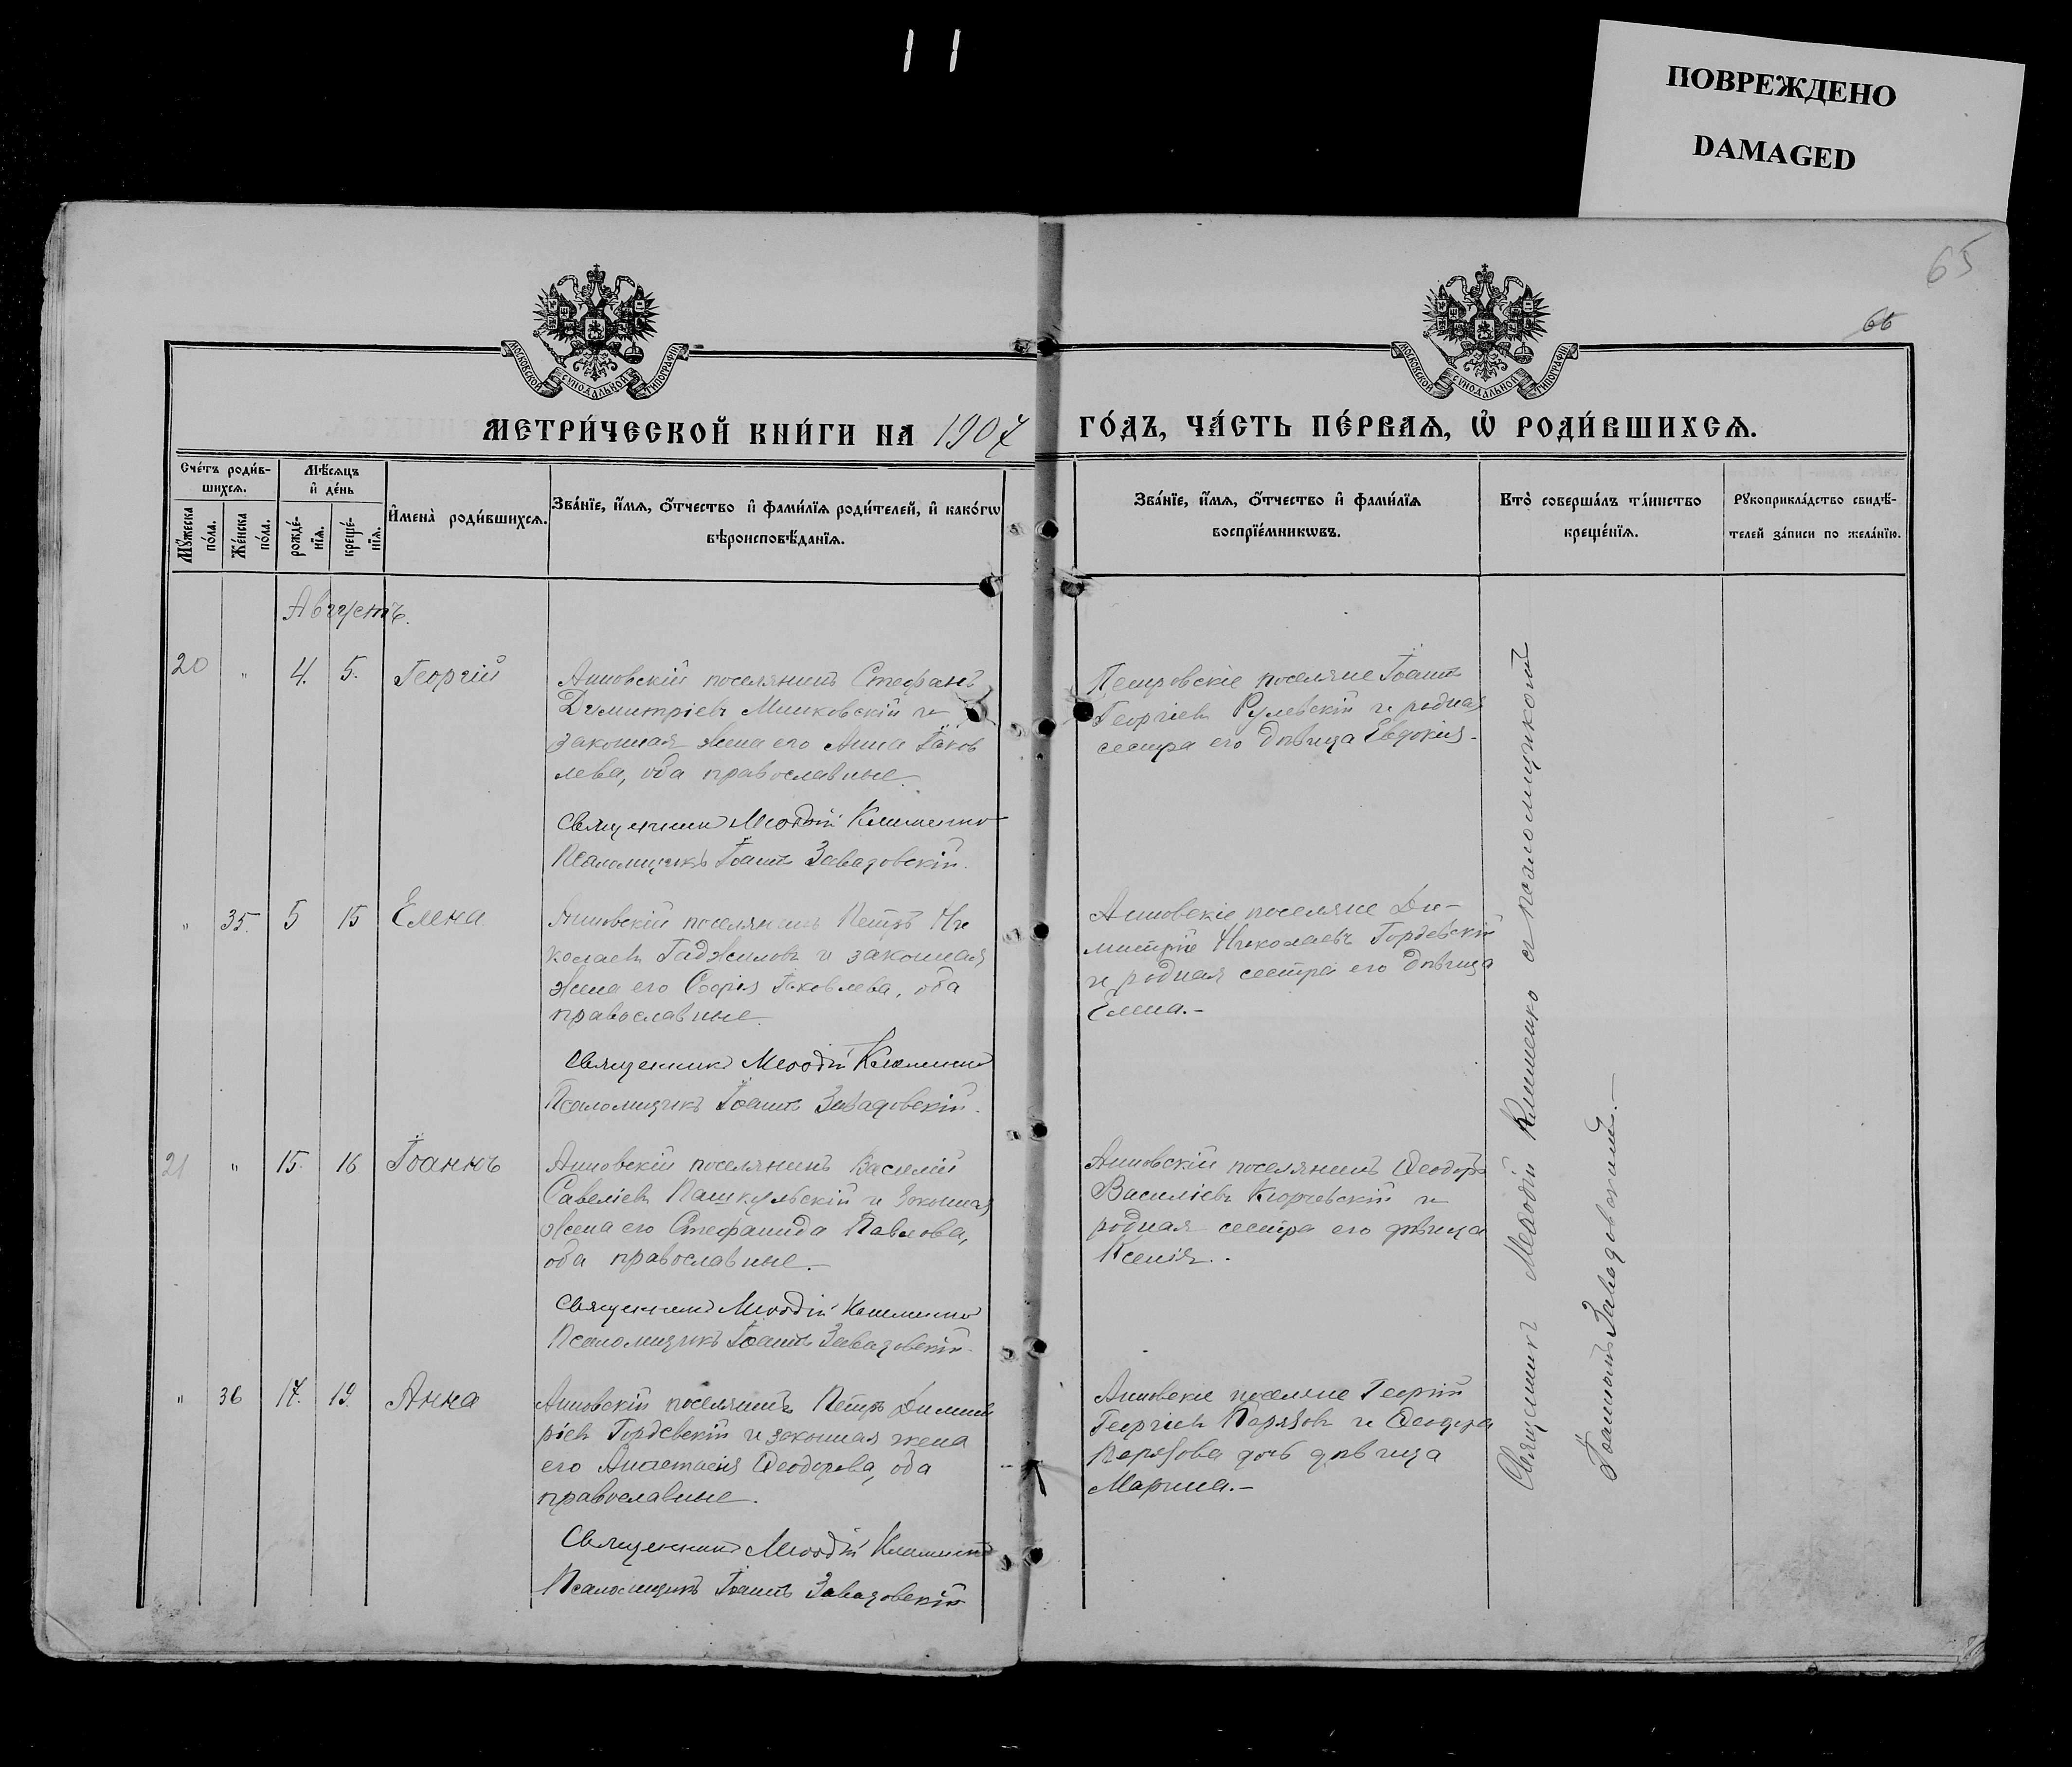 ПОВРЕЖДЕНО
DAMAGED
65
66
МОСКОВСКОЙ СѴНОДАЛЬНОЙ ТИПОГРАФІИ
МОСКОВСКОЙ СѴНОДАЛЬНОЙ ТИПОГРАФІИ
МЕТРИ́ЧЕСКОЙ КНИ́ГИ НА 1907
ГО́ДЪ, ЧА́СТЬ ПЕ́РВАѦ, Ѡ҆ РОДИ́ВШИХСѦ.
Сче́тъ роди́в-
шихсѧ.
Мѣ́сѧцъ
и҆ де́нь
Мꙋ́жеска
по́ла.
Же́нска
по́ла.
рожде́-
нїѧ.
креще́-
нїѧ.
И҆мена̀ роди́вшихсѧ.
Зва́нїе, и҆́мѧ, ѻ҆́тчество и҆ фами́лїѧ роди́телей, и҆ како́гѡ
вѣроисповѣ́данїѧ.
Зва́нїе, и҆́мѧ, ѻ҆́тчество и҆ фами́лїѧ
воспрїе́мникѡвъ.
Кто̀ соверша́лъ та́инство
креще́нїѧ.
Рꙋкоприкла́дство свидѣ́-
телей за́писи по жела́нїю.
Августъ.
20 " 4. 5. Георгій
Анновскій поселянинъ Стефанъ
Димитріевъ Минковскій и
законная жена его Анна Іаков
лева, оба православные.
Священникъ Меѳодій Клименко
Псаломщикъ Іоаннъ Завадовскій.
Петровскіе поселяне Іоаннъ
Георгіевъ Рулевскій и родная
сестра его дѣвица Евдокія.-
" 35. 5 15 Елена
Анновскій поселянинъ Петръ Ни
колаевъ Гаджиловъ и законная
жена его Софія Іаковлева, оба
православные.
Священникъ Меѳодій Клименко
Псаломщикъ Іоаннъ Завадовскій.
Анновскіе поселяне Ди-
митрій Николаевъ Гордевскій
и родная сестра его дѣвица
Елена.-
21 " 15. 16 Іоаннъ
Анновскій поселянинъ Василій
Савеліевъ Пашкульскій и законная
жена его Стефанида Павлова,
оба православные.-
Священникъ Меѳодій Клименко
Псаломщикъ Іоаннъ Завадовскій.
Анновскій поселянинъ Ѳеодоръ
Василіевъ Кюрчевскій и
родная сестра его дѣвица
Ксенія.-
" 36 17. 19. Анна
Анновскій поселянинъ Петръ Димит
ріевъ Гордевскій и законная жена
его Анастасія Ѳеодорова, оба
православные.
Священникъ Меѳодій Клименко
Псаломщикъ Іоаннъ Завадовскій
Анновскіе поселяне Георгій
Георгіевъ и Ѳеодора
дочь дѣвица
Марина.-
Священникъ Меѳодій Клименко съ псаломщикомъ
Іоанномъ Завадовскимъ.-